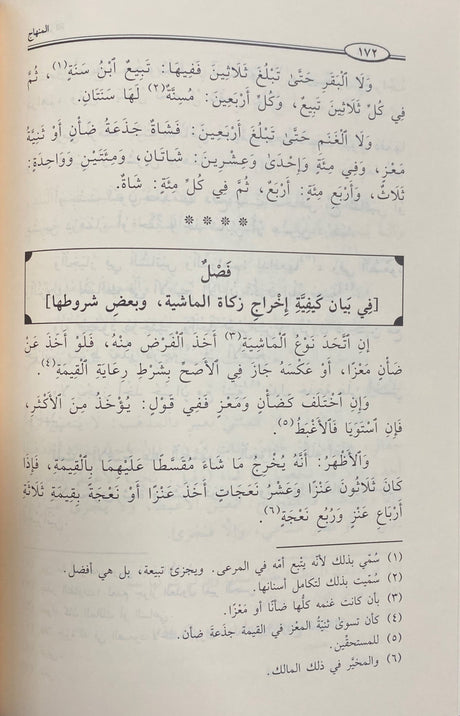 المنهاج
١٧٢
وَلَا ٱلْبَقَرِ حَتَّىٰ تَبْلُغَ ثَلَاثِينَ فَفِيهَا: تَبِيعٌ ٱبْنُ سَنَةٍ(١)، ثُمَّ
فِي كُلِّ ثَلَاثِينَ تَبِيعٌ، وَكُلِّ أَرْبَعِينَ: مُسِنَّةٌ(٢) لَهَا سَنَتَانِ.
وَلَا ٱلْغَنَمِ حَتَّىٰ تَبْلُغَ أَرْبَعِينَ: فَشَاةٌ جَذَعَةُ ضَأْنٍ أَوْ ثَنِيَّةُ
مَعْزٍ، وَفِي مِئَةٍ وَإِحْدَىٰ وَعِشْرِينَ: شَاتَانِ، وَمِئَتَيْنِ وَوَاحِدَةٍ:
ثَلَاثٌ، وَأَرْبَعِ مِئَةٍ: أَرْبَعٌ، ثُمَّ فِي كُلِّ مِئَةٍ: شَاةٌ.
* * * *
فَصْلٌ
[فِي بَيَانِ كَيْفِيَّةِ إِخْرَاجِ زكاة الماشية، وبعضِ شروطها]
إِنِ ٱتَّحَدَ نَوْعُ ٱلْمَاشِيَةِ(٣) أَخَذَ ٱلْفَرْضَ مِنْهُ، فَلَوْ أَخَذَ عَنْ
ضَأْنٍ مَعْزًا، أَوْ عَكْسُهُ جَازَ فِي ٱلْأَصَحِّ بِشَرْطِ رِعَايَةِ ٱلْقِيمَةِ(٤).
وَإِنِ ٱخْتَلَفَ كَضَأْنٍ وَمَعْزٍ فَفِي قَوْلٍ: يُؤْخَذُ مِنَ ٱلْأَكْثَرِ،
فَإِنِ ٱسْتَوَيَا فَٱلْأَغْبَطُ(٥).
وَٱلْأَظْهَرُ: أَنَّهُ يُخْرِجُ مَا شَاءَ مُقَسَّطًا عَلَيْهِمَا بِٱلْقِيمَةِ، فَإِذَا
كَانَ ثَلَاثُونَ عَنْزًا وَعَشْرُ نَعَجَاتٍ أَخَذَ عَنْزًا أَوْ نَعْجَةً بِقِيمَةِ ثَلَاثَةِ
أَرْبَاعِ عَنْزٍ وَرُبُعِ نَعْجَةٍ(٦).
(١) سُمِّي بذلك لأنّه يتْبع أمّه في المرعى. ويجزئ تبيعة، بل هي أفضل.
(٢) سُمِّيت بذلك لتكامل أسنانها.
(٣) بأن كانت غنمه كلُّها ضأنًا أو مَعْزًا.
(٤) كأن تسوىٰ ثنيّةُ المعْز في القيمة جذَعةَ ضأن.
(٥) للمستحقّين.
(٦) والمخيَّر في ذلك المالك.